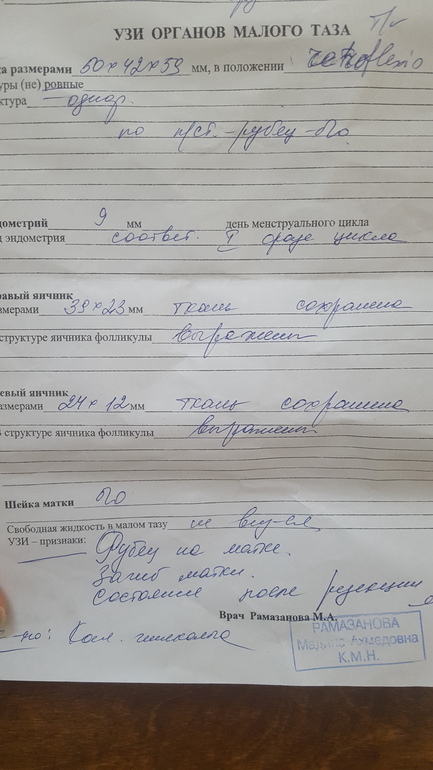 УЗИ ОРГАНОВ МАЛОГО ТАЗА
ка размерами 50×42×59 мм, в положении : retroflexio
уры (не) ровные
ктура однор.
по п/ст. - рубец - б/о
дометрий 9 мм день менструального цикла
эндометрия соответ. I фазе цикла
равый яичник
змерами 39×23 мм ткань сохранена
структуре яичника фолликулы выражены
евый яичник
азмерами 24×12 мм ткань сохранена
структуре яичника фолликулы выражены
Шейка матки б/о
Свободная жидкость в малом тазу не
УЗИ – признаки: Рубец на матке.
Загиб матки.
Состояние после резекции
Врач Рамазанова М.А.
Кон. гинеколога
РАМАЗАНОВА
Ахмедовна
К.М.Н.